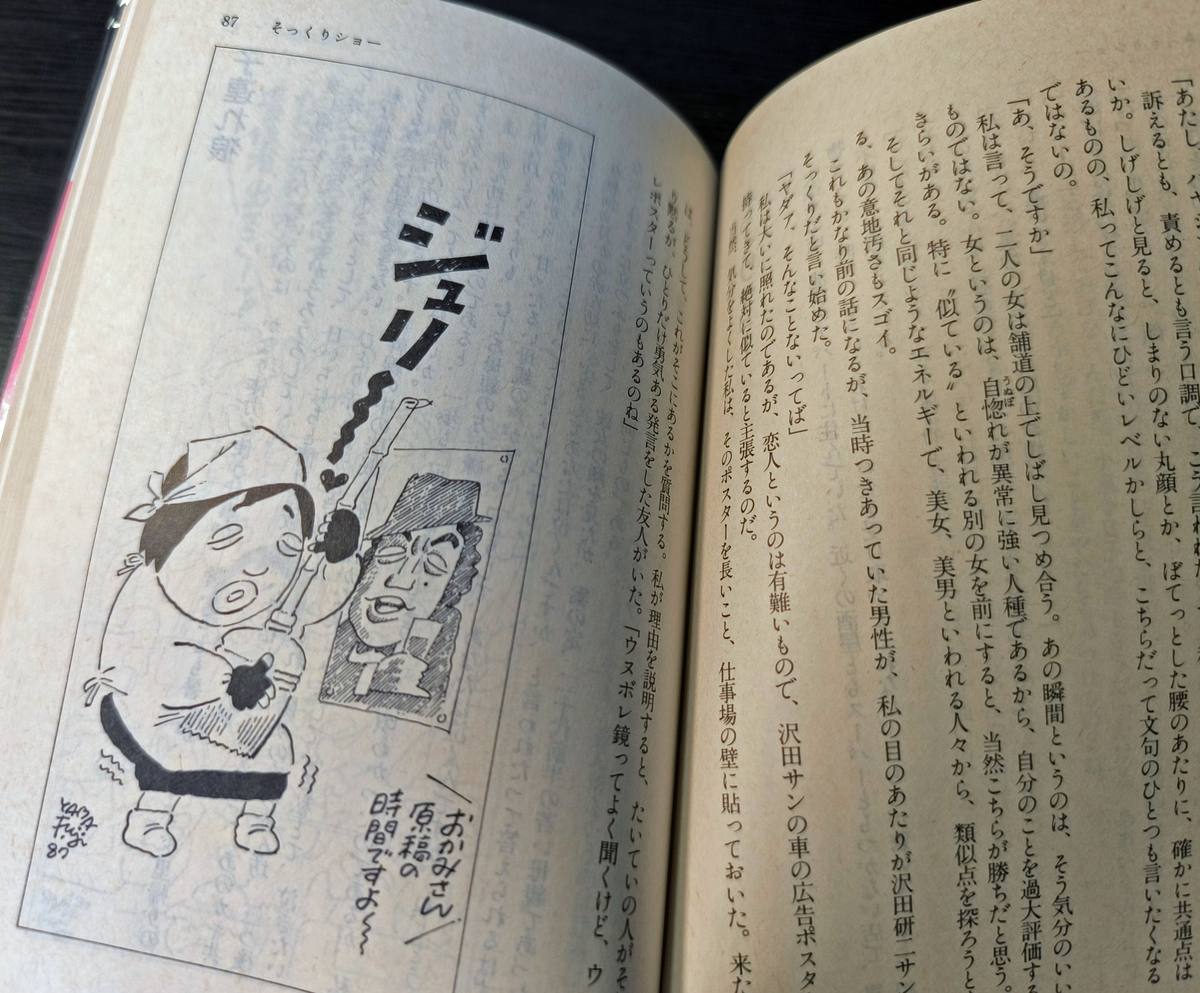 訴えるとも、責めるとも言う口調で、こう言われた
いか。しげしげと見ると、しまりのない丸顔とか、ぼてっとした腰のあたりに、確かに共通点は
あるものの、私ってこんなにひどいレベルかしらと、こちらだって文句のひとつも言いたくなる
ではないの。
「あ、そうですか」
私は言って、二人の女は舗道の上でしばし見つめ合う。あの瞬間というのは、そう気分のいい
ものではない。女というのは、自惚れが異常に強い人種であるから、自分のことを過大評価する
うぬぼ
きらいがある。特に〝似ている〟といわれる別の女を前にすると、当然こちらが勝ちだと思う。
そしてそれと同じようなエネルギーで、美女、美男といわれる人々から、類似点を探ろうと
る、あの意地汚さもスゴイ。
これもかなり前の話になるが、当時つきあっていた男性が、私の目のあたりが沢田研二サン
そっくりだと言い始めた。
「ヤダァ、そんなことないってば」
私は大いに照れたのであるが、恋人というのは有難いもので、沢田サンの車の広告ポスタ
持ってきて、絶対に似ていると主張するのだ。
当然、気分をよくした私は、そのポスターを長いこと、仕事場の壁に貼っておいた。来た
87 そっくりショー
は、どうして、これがそこにあるかを質問する。私が理由を説明すると、たいていの人がそ
り黙るが、ひとりだけ勇気ある発言をした友人がいた。「ウヌボレ鏡ってよく聞くけど、ウ
レポスターっていうのもあるのね」
ジュリ〜♥
おかみさん
原稿の
時間ですよ〜
YAMA
Fuji
87